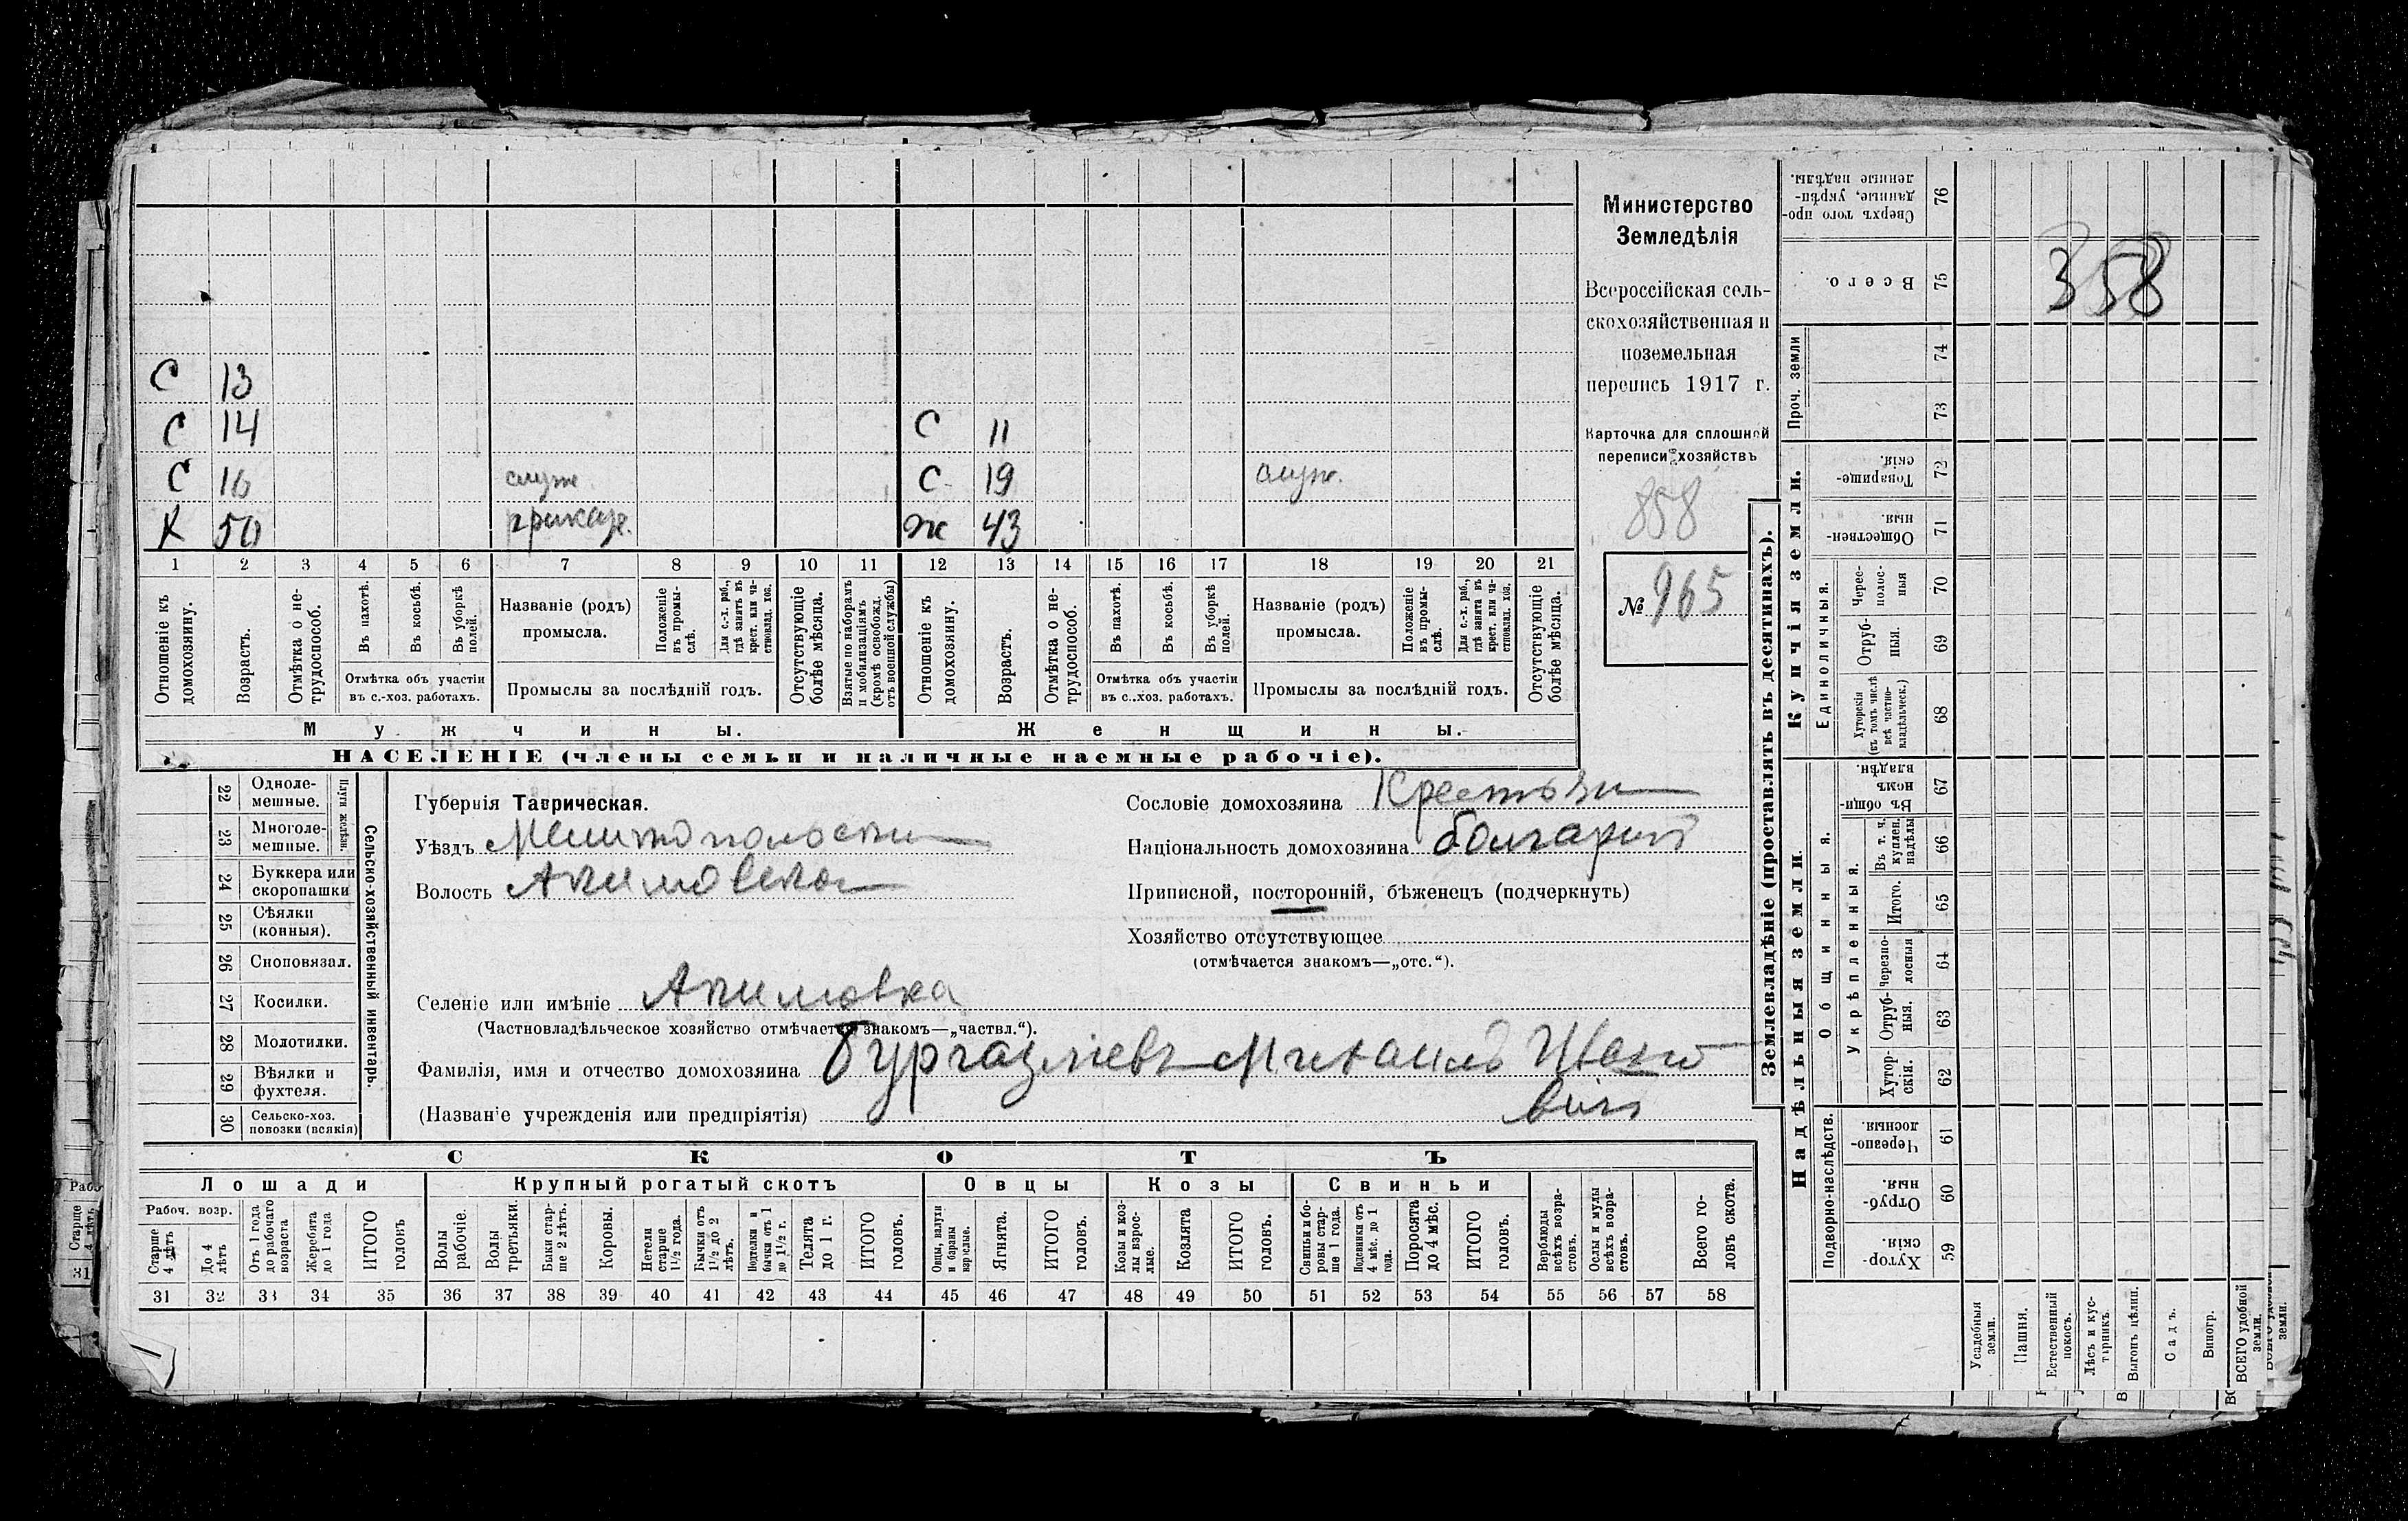 Министерство
Земледѣлія
Всероссійская сель-
скохозяйственная и
поземельная
перепись 1917 г.
Карточка для сплошной
переписи хозяйствъ
858
№ 965
358
С 13
С 14 С 11
С 16 служ. С 19 служ.
Х 50 приказч. ж 43
1 2 3 4 5 6 7 8 9 10 11 12 13 14 15 16 17 18 19 20 21
Отношеніе къ домохозяину.
Возрастъ.
Отмѣтка о не-трудоспособ.
Въ пахотѣ.
Въ косьбѣ.
Въ уборкѣ полей.
Отмѣтка объ участіи
въ с.-хоз. работахъ.
Названіе (родъ)
промысла.
Положеніе въ промы-слѣ.
Для с.-х. раб., гдѣ занятъ въ крест. или ча-стновлад. хоз.
Промыслы за послѣдній годъ.
Отсутствующіе болѣе мѣсяца.
Взятые по наборамъ и мобилизаціямъ (кромѣ освобожд. отъ военной службы)
Отношеніе къ домохозяину.
Возрастъ.
Отмѣтка о не-трудоспособ.
Въ пахотѣ.
Въ косьбѣ.
Въ уборкѣ полей.
Отмѣтка объ участіи
въ с.-хоз. работахъ.
Названіе (родъ)
промысла.
Положеніе въ промы-слѣ.
Для с.-х. раб., гдѣ занята въ крест. или ча-стновлад. хоз.
Промыслы за послѣдній годъ.
Отсутствующіе болѣе мѣсяца.
Мужчины. Женщины.
НАСЕЛЕНІЕ (члены семьи и наличные наемные рабочіе).
Сельско-хозяйственный инвентарь.
Плуги желѣзн.
22 Одноле-мешные.
23 Многоле-мешные.
24 Буккера или скоропашки
25 Сѣялки (конныя).
26 Сноповязал.
27 Косилки.
28 Молотилки.
29 Вѣялки и фухтеля.
30 Сельско-хоз. повозки (всякія)
Губернія Таврическая.
Уѣздъ Мелитопольский
Волость Акимовская
Селеніе или имѣніе Акимовка
(Частновладѣльческое хозяйство отмѣчается знакомъ—„частвл.“).
Фамилія, имя и отчество домохозяина Бургазлиевъ Михаилъ Ивано
вичъ
(Названіе учрежденія или предпріятія)
Сословіе домохозяина Крестьянин
Національность домохозяина болгаринъ
Приписной, посторонній, бѣженецъ (подчеркнуть)
Хозяйство отсутствующее
(отмѣчается знакомъ—„отс.“).
СКОТЪ
Лошади Крупный рогатый скотъ Овцы Козы Свиньи
Рабоч. возр.
Старше 4 лѣтъ
До 4 лѣтъ
Отъ 1 года до рабочаго возраста
Жеребята до 1 года
ИТОГО головъ
Волы рабочіе.
Волы третьяки.
Быки стар-ше 2 лѣтъ.
Коровы.
Нетели старше 1½ года.
Бычки отъ 1½ до 2 лѣтъ.
Подтелки и бычки отъ 1 до 1½ г.
Телята до 1 г.
ИТОГО головъ.
Овцы, валухи и бараны взрослые.
Ягнята.
ИТОГО головъ.
Козы и коз-лы взрос-лые.
Козлята
ИТОГО головъ.
Свиньи и бо-ровы стар-ше 1 года.
Подсвинки отъ 4 мѣс. до 1 года.
Поросята до 4 мѣс.
ИТОГО головъ.
Верблюды всѣхъ возра-стовъ.
Ослы и мулы всѣхъ возра-стовъ.
Всего го-ловъ скота.
31 32 33 34 35 36 37 38 39 40 41 42 43 44 45 46 47 48 49 50 51 52 53 54 55 56 57 58
Землевладѣніе (проставлять въ десятинахъ).
Надѣльныя земли.
Купчія земли.
Проч. земли
Подворно-наслѣдств.
Общинныя.
Укрѣпленныя.
Единоличныя.
Сверхъ того про-данные, укрѣп-ленные надѣлы. 76
Всего. 75
74
73
Товарище-скія. 72
Обществен-ныя. 71
Черес-полос-ныя 70
Отруб-ныя. 69
Хуторскія (въ томъ числѣ всѣ частно-владѣльческ.) 68
Въ общин-номъ владѣн. 67
Въ т. ч. куплен. надѣлы 66
Итого. 65
Черезпо-лосныя 64
Отруб-ныя. 63
Хутор-скія. 62
Черезпо-лосныя. 61
Отруб-ныя. 60
Хутор-скія. 59
Усадебныя земли.
Пашня.
Естественный покосъ.
Лѣсъ и кус-тарникъ.
Выгонъ цѣлин.
Садъ.
Виногр.
ВСЕГО удобной земли.